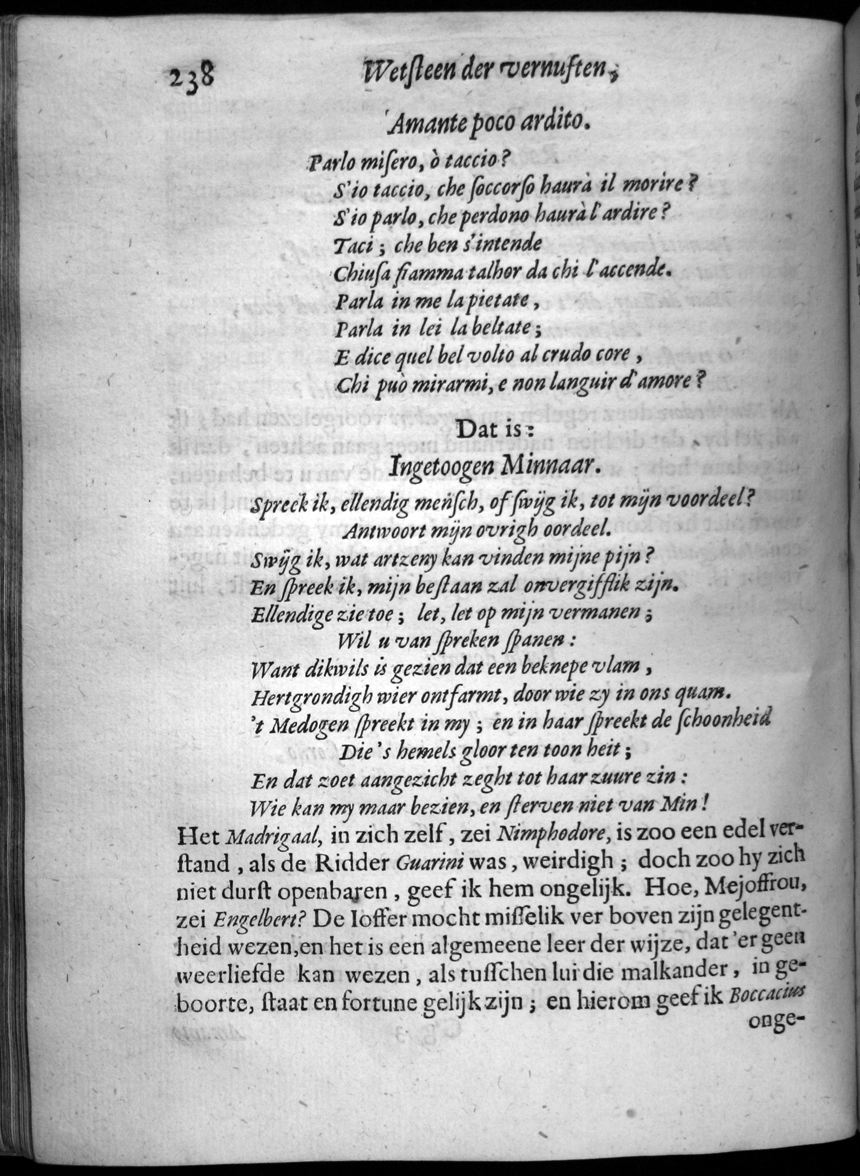 238
Wetſteen der vernuften,
Amante poco ardito.
Parlo miſero, ò taccio?
S'io taccio, che ſoccorſo haurà il morire?
S'io parlo, che perdono haurà l'ardire?
Taci; che ben s'intende
Chiuſa fiamma talhor da chi l'accende.
Parla in me la pietate,
Parla in lei la beltate;
E dice quel bel volto al crudo core,
Chi può mirarmi, e non languir d'amore?
Dat is:
Ingetoogen Minnaar.
Spreek ik, ellendig menſch, of ſwijg ik, tot mijn voordeel?
Antwoort mijn ovrigh oordeel.
Swijg ik, wat artzeny kan vinden mijne pijn?
En ſpreek ik, mijn beſtaan zal onvergifflik zijn.
Ellendige zie toe; let, let op mijn vermanen;
Wil u van ſpreken ſpanen:
Want dikwils is gezien dat een beknepe vlam,
Hertgrondigh wier ontfarmt, door wie zy in ons quam.
't Medogen ſpreekt in my; en in haar ſpreekt de ſchoonheid
Die 's hemels gloor ten toon heit;
En dat zoet aangezicht zeght tot haar zuure zin:
Wie kan my maar bezien, en ſterven niet van Min!
Het Madrigaal, in zich zelf, zei Nimphodore, is zoo een edel ver-
ſtand, als de Ridder Guarini was, weirdigh; doch zoo hy zich
niet durſt openbaren, geef ik hem ongelijk. Hoe, Mejoffrou,
zei Engelbert? De Ioffer mocht miſſelik ver boven zijn gelegent-
heid wezen, en het is een algemeene leer der wijze, dat 'er geen
weerliefde kan wezen, als tuſſchen lui die malkander, in ge-
boorte, ſtaat en fortune gelijk zijn; en hierom geef ik Boccacius
onge-